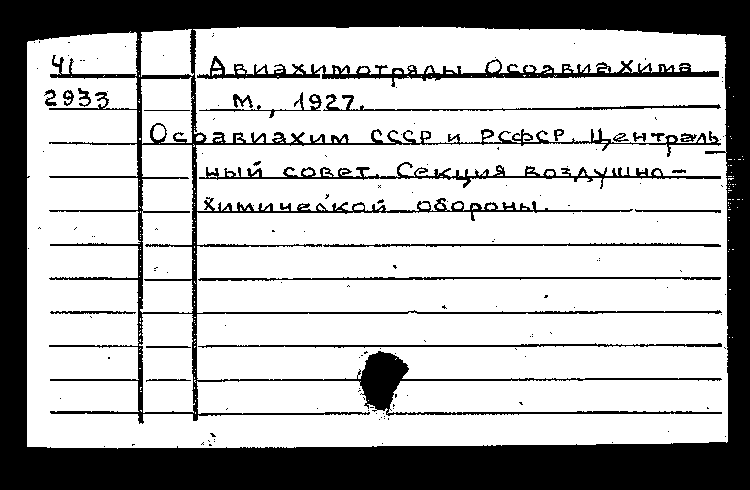 41 Авиахимотряды Осоавиахима
2933 М., 1927.
Осоавиахим СССР и РСФСР. Централь
ный совет. Секция воздушно-
химической обороны.